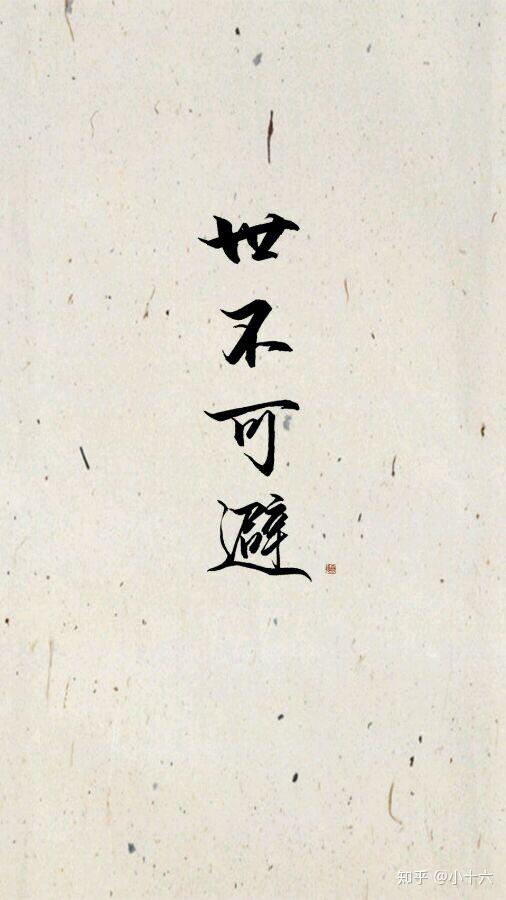 世不可避
知乎 @小十六